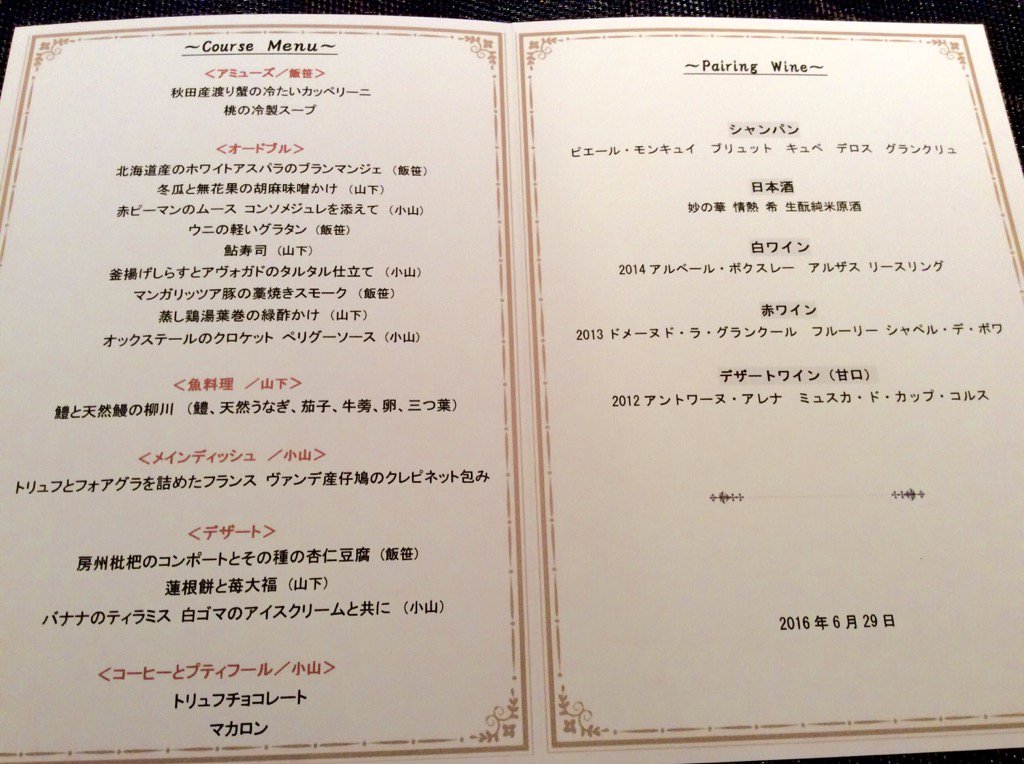 ～Course Menu～
＜アミューズ／飯笹＞
秋田産渡り蟹の冷たいカッペリーニ
桃の冷製スープ
＜オードブル＞
北海道産のホワイトアスパラのブランマンジェ（飯笹）
冬瓜と無花果の胡麻味噌かけ（山下）
赤ピーマンのムース コンソメジュレを添えて（小山）
ウニの軽いグラタン（飯笹）
鮎寿司（山下）
釜揚げしらすとアヴォガドのタルタル仕立て（小山）
マンガリッツア豚の藁焼きスモーク（飯笹）
蒸し鶏湯葉巻の緑酢かけ（山下）
オックステールのクロケット ペリグーソース（小山）
＜魚料理 ／山下＞
鱧と天然鰻の柳川 （鱧、天然うなぎ、茄子、牛蒡、卵、三つ葉）
＜メインディッシュ ／小山＞
トリュフとフォアグラを詰めたフランス ヴァンデ産仔鳩のクレピネット包み
＜デザート＞
房州枇杷のコンポートとその種の杏仁豆腐（飯笹）
蓮根餅と苺大福（山下）
バナナのティラミス 白ゴマのアイスクリームと共に（小山）
＜コーヒーとプティフール／小山＞
トリュフチョコレート
マカロン
～Pairing Wine～
シャンパン
ピエール・モンキュイ ブリュット キュベ デロス グランクリュ
日本酒
妙の華 情熱 希 生酛純米原酒
白ワイン
2014 アルベール・ボクスレー アルザス リースリング
赤ワイン
2013 ドメーヌド・ラ・グランクール フルーリー シャペル・デ・ボワ
デザートワイン（甘口）
2012 アントワーヌ・アレナ ミュスカ・ド・カップ・コルス
2016年6月29日